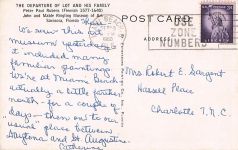 THE DEPARTURE OF LOT AND HIS FAMILY
Peter Paul Rubens (Flemish 1577-1640)
John and Mable Ringling Museum of Art
Sarasota, Florida
POST CARD
ZONE
NUMBERS
We saw this wk
museum yesterday &
it included many
familiar paintings
We're at Miami Beach
actually a little further
north - for a couple of
days - then on to our
usual place between
Daytona and St. Augustine
Catherine
Mrs Robert E. Sargent
Hassell Place
Charlotte 7, N.C.